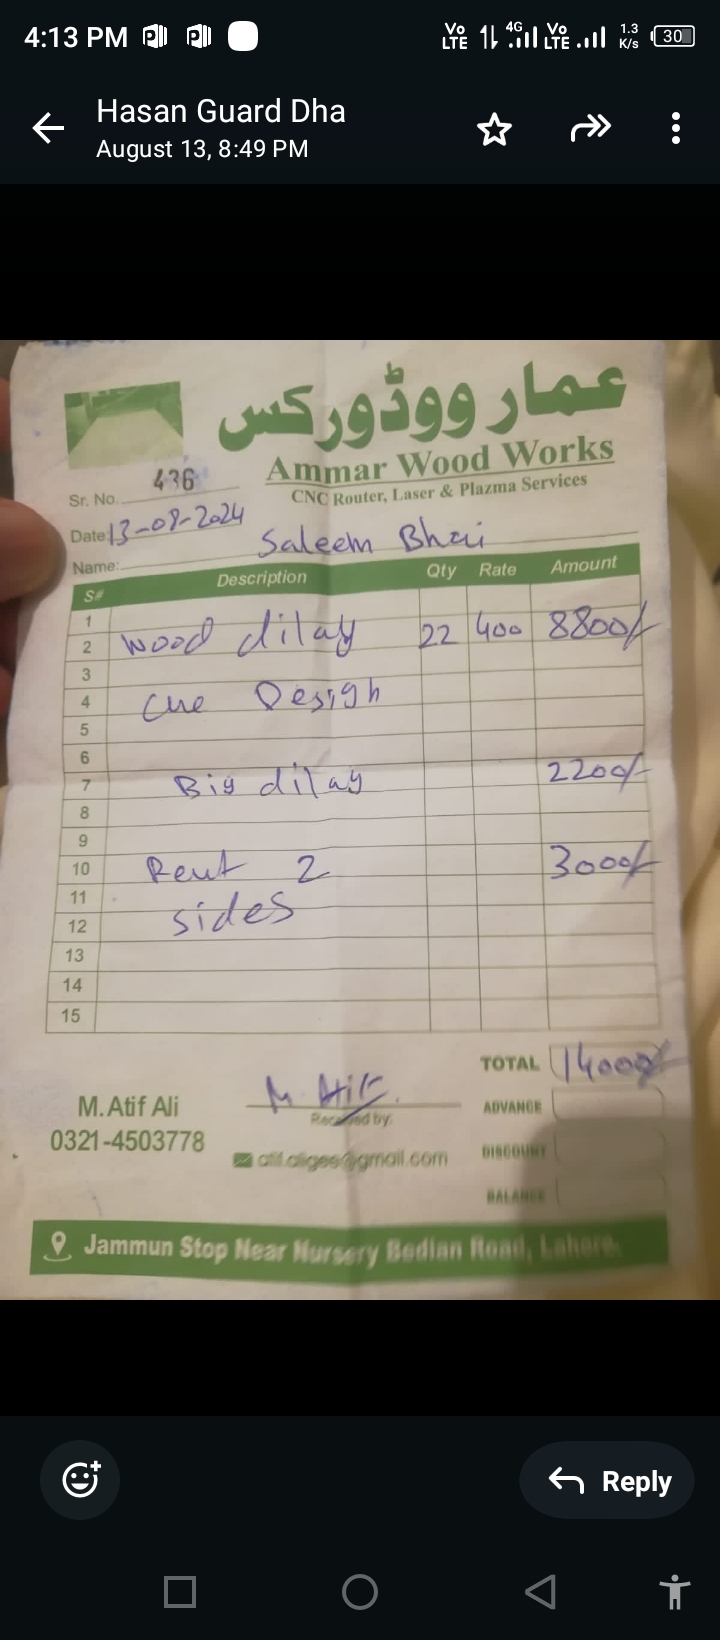 4:13 PM
Vo LTE 4G Vo LTE 1.3 K/s 30
Hasan Guard Dha
August 13, 8:49 PM
عمار ووڈورکس
Ammar Wood Works
CNC Router, Laser & Plazma Services
Sr. No. 436
Date: 13-08-2024
Name: Saleem Bhai
S# Description Qty Rate Amount
1
2 Wood dilay 22 400 8800/-
3
4 Cne Desigh
5
6
7 Big dilay 2200/-
8
9
10 Rent 2 3000/-
11
12 sides
13
14
15
TOTAL 14000/-
M. Atif
M.Atif Ali
Received by:
ADVANCE
0321-4503778
atif.aligee@gmail.com
DISCOUNT
BALANCE
Jammun Stop Near Nursery Bedian Road, Lahore.
Reply